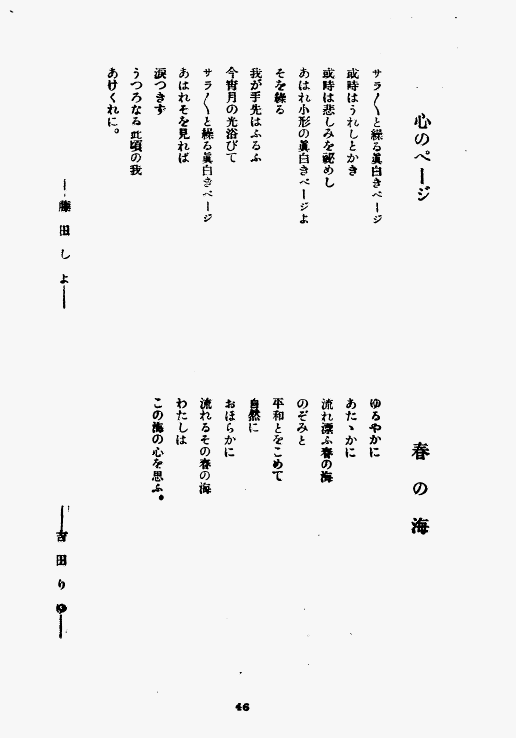 心のページ
サラ〳〵と繰る眞白きページ
或時はうれしとかき
或時は悲しみを祕めし
あはれ小形の眞白きページよ
そを繰る
我が手先はふるふ
今宵月の光浴びて
サラ〳〵と繰る眞白きページ
あはれそを見れば
淚つきず
うつろなる此頃の我
あけくれに。
―藤田しよ―
春の海
ゆるやかに
あたゝかに
流れ漂ふ春の海
のぞみと
平和とをこめて
自然に
おほらかに
流れるその春の海
わたしは
この海の心を思ふ。
―吉田りゆ―
46